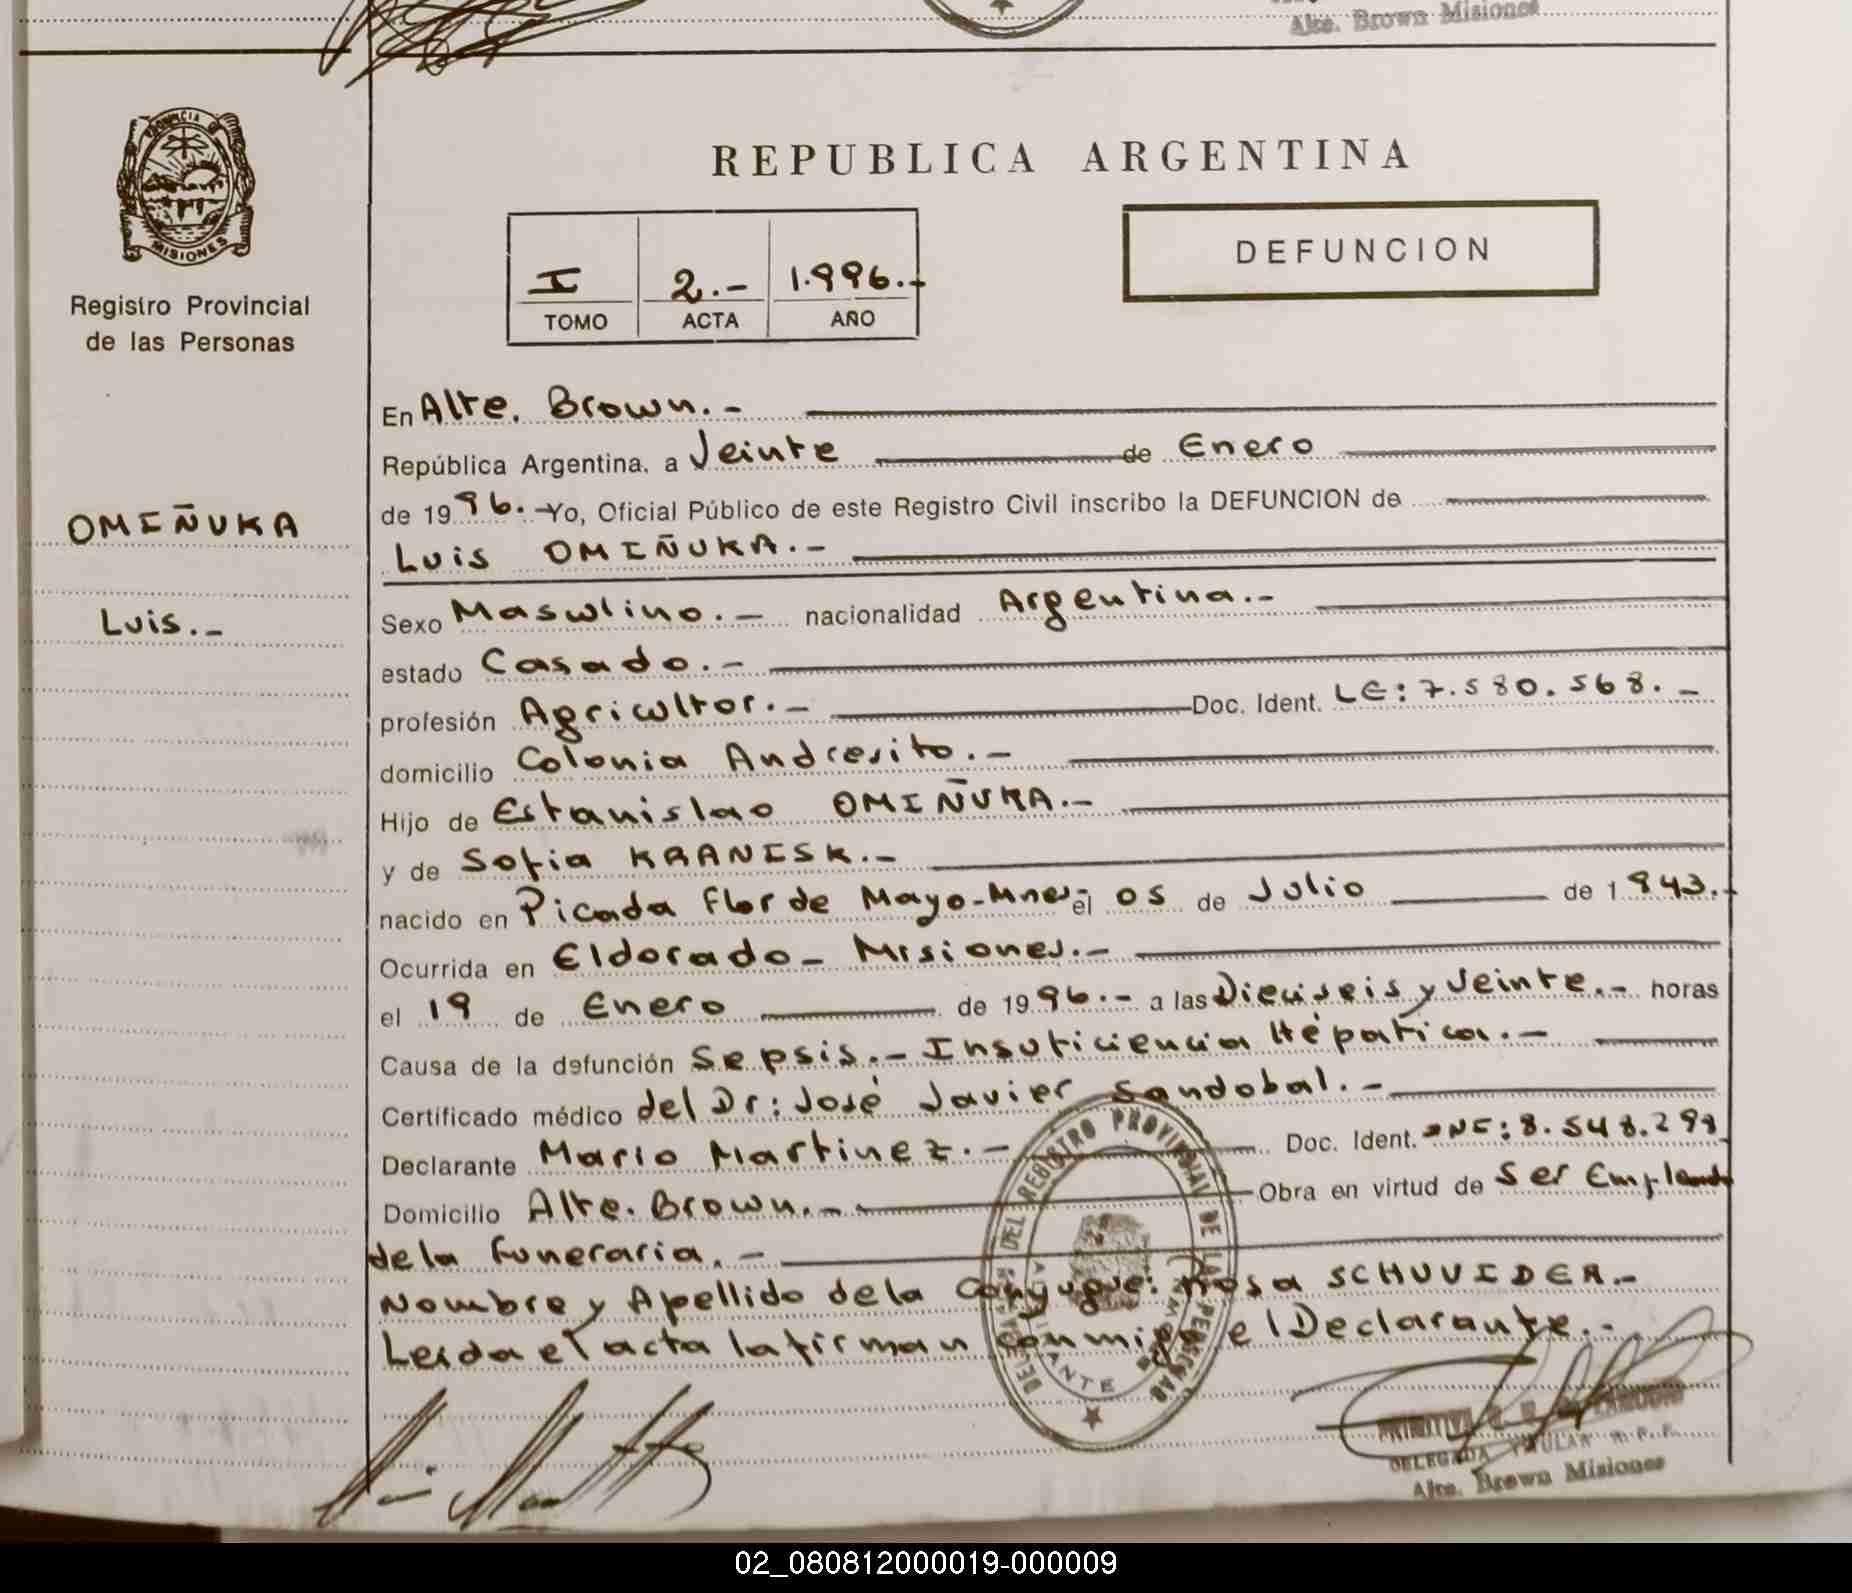 Alte. Brown Misiones
PROVINCIA DE
MISIONES
Registro Provincial
de las Personas
REPUBLICA ARGENTINA
DEFUNCION
I 2.- 1.996.-
TOMO ACTA AÑO
OMIÑUKA
Luis.-
En Alte. Brown.-
República Argentina, a Veinte de Enero
de 1996.- Yo, Oficial Público de este Registro Civil inscribo la DEFUNCION de
Luis OMIÑUKA.-
Sexo Masculino.- nacionalidad Argentina.-
estado Casado.-
profesión Agricultor.- Doc. Ident. LE: 7.580.568.-
domicilio Colonia Andresito.-
Hijo de Estanislao OMIÑUKA.-
y de Sofia KRANISK.-
nacido en Picada Flor de Mayo-Mnes- el 05 de Julio de 1.943.-
Ocurrida en Eldorado- Misiones.-
el 19 de Enero de 1996.- a las Dieciseis y Veinte.- horas
Causa de la defunción Sepsis.- Insuficiencia Hépatica.-
Certificado médico del Dr: José Javier Sandobal.-
Declarante Mario Martinez.- Doc. Ident. DNI: 8.548.298
Domicilio Alte. Brown.- Obra en virtud de Ser Empleado
de la Funeraria.-
Nombre y Apellido de la Conyugue: Rosa SCHUVIDER.-
Leida el acta la firman conmigo el Declarante.-
DEL REGISTRO PROVINCIAL DE LAS PERSONAS
DELEGADA TITULAR R.P.P.
Alte. Brown Misiones
02_080812000019-000009